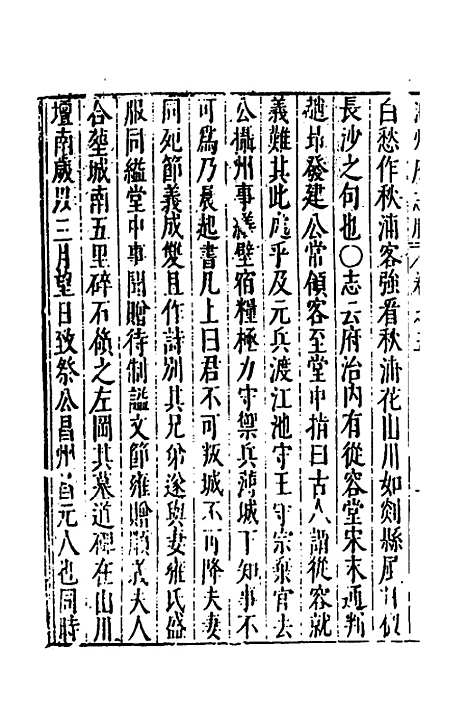 白愁作秋浦客強看秋浦花山川如剡縣風日似
長沙之句也○志云府治内有從容堂宋末通判
趙昂發建公常領客至堂中指曰古人謂從容就
義難其此處乎及元兵渡江池守王守宗棄官去
公攝州事繕壁宿糧極力守禦兵薄城下知事不
可爲乃晨起書几上曰君不可叛城不可降夫妻
同死節義成雙且作詩別其兄弟遂與妻雍氏盛
服同縊堂中事聞贈待制謚文節雍贈順義夫人
合塟城南五里碎石嶺之左岡其墓道碑在山川
壇南歲以三月望日致祭公昌州昌元人也同時